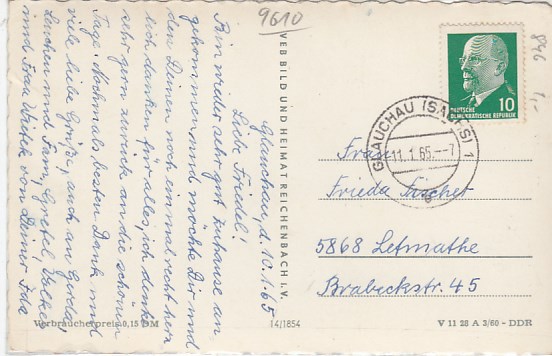 Glauchau, d. 10.1.65
Liebe Friedel!
Bin wieder sehr gut Zuhause an
gekommen und möchte Dir und
den Deinen noch einmal recht herz
lich danken für alles, ich denke
sehr gern zurück an die schönen
Tage. Nochmals besten Dank und
viele liebe Grüße, auch an Gerda,
und Fam, Gretel,
und Frau von Deiner
VEB BILD UND HEIMAT REICHENBACH I. V.
9610
846
1,-
DEUTSCHE
DEMOKRATISCHE REPUBLIK
10
GLAUCHAU (SACHS) 1
11.1.65.--7
Frau
Frieda Fischer
5868 Letmathe
Brabeckstr. 45
Verbraucherpreis 0,15 DM
14/1854
V 11 28 A 3/60 - DDR